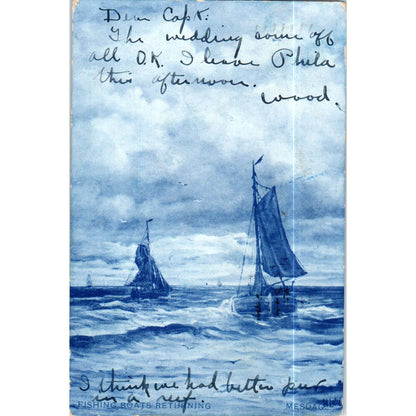 Dear Capt:
The wedding come off
all O.K. I leave Phila
this afternoon.
Wood.
I think we had better put
in a reef.
FISHING BOATS RETURNING
MESDAG